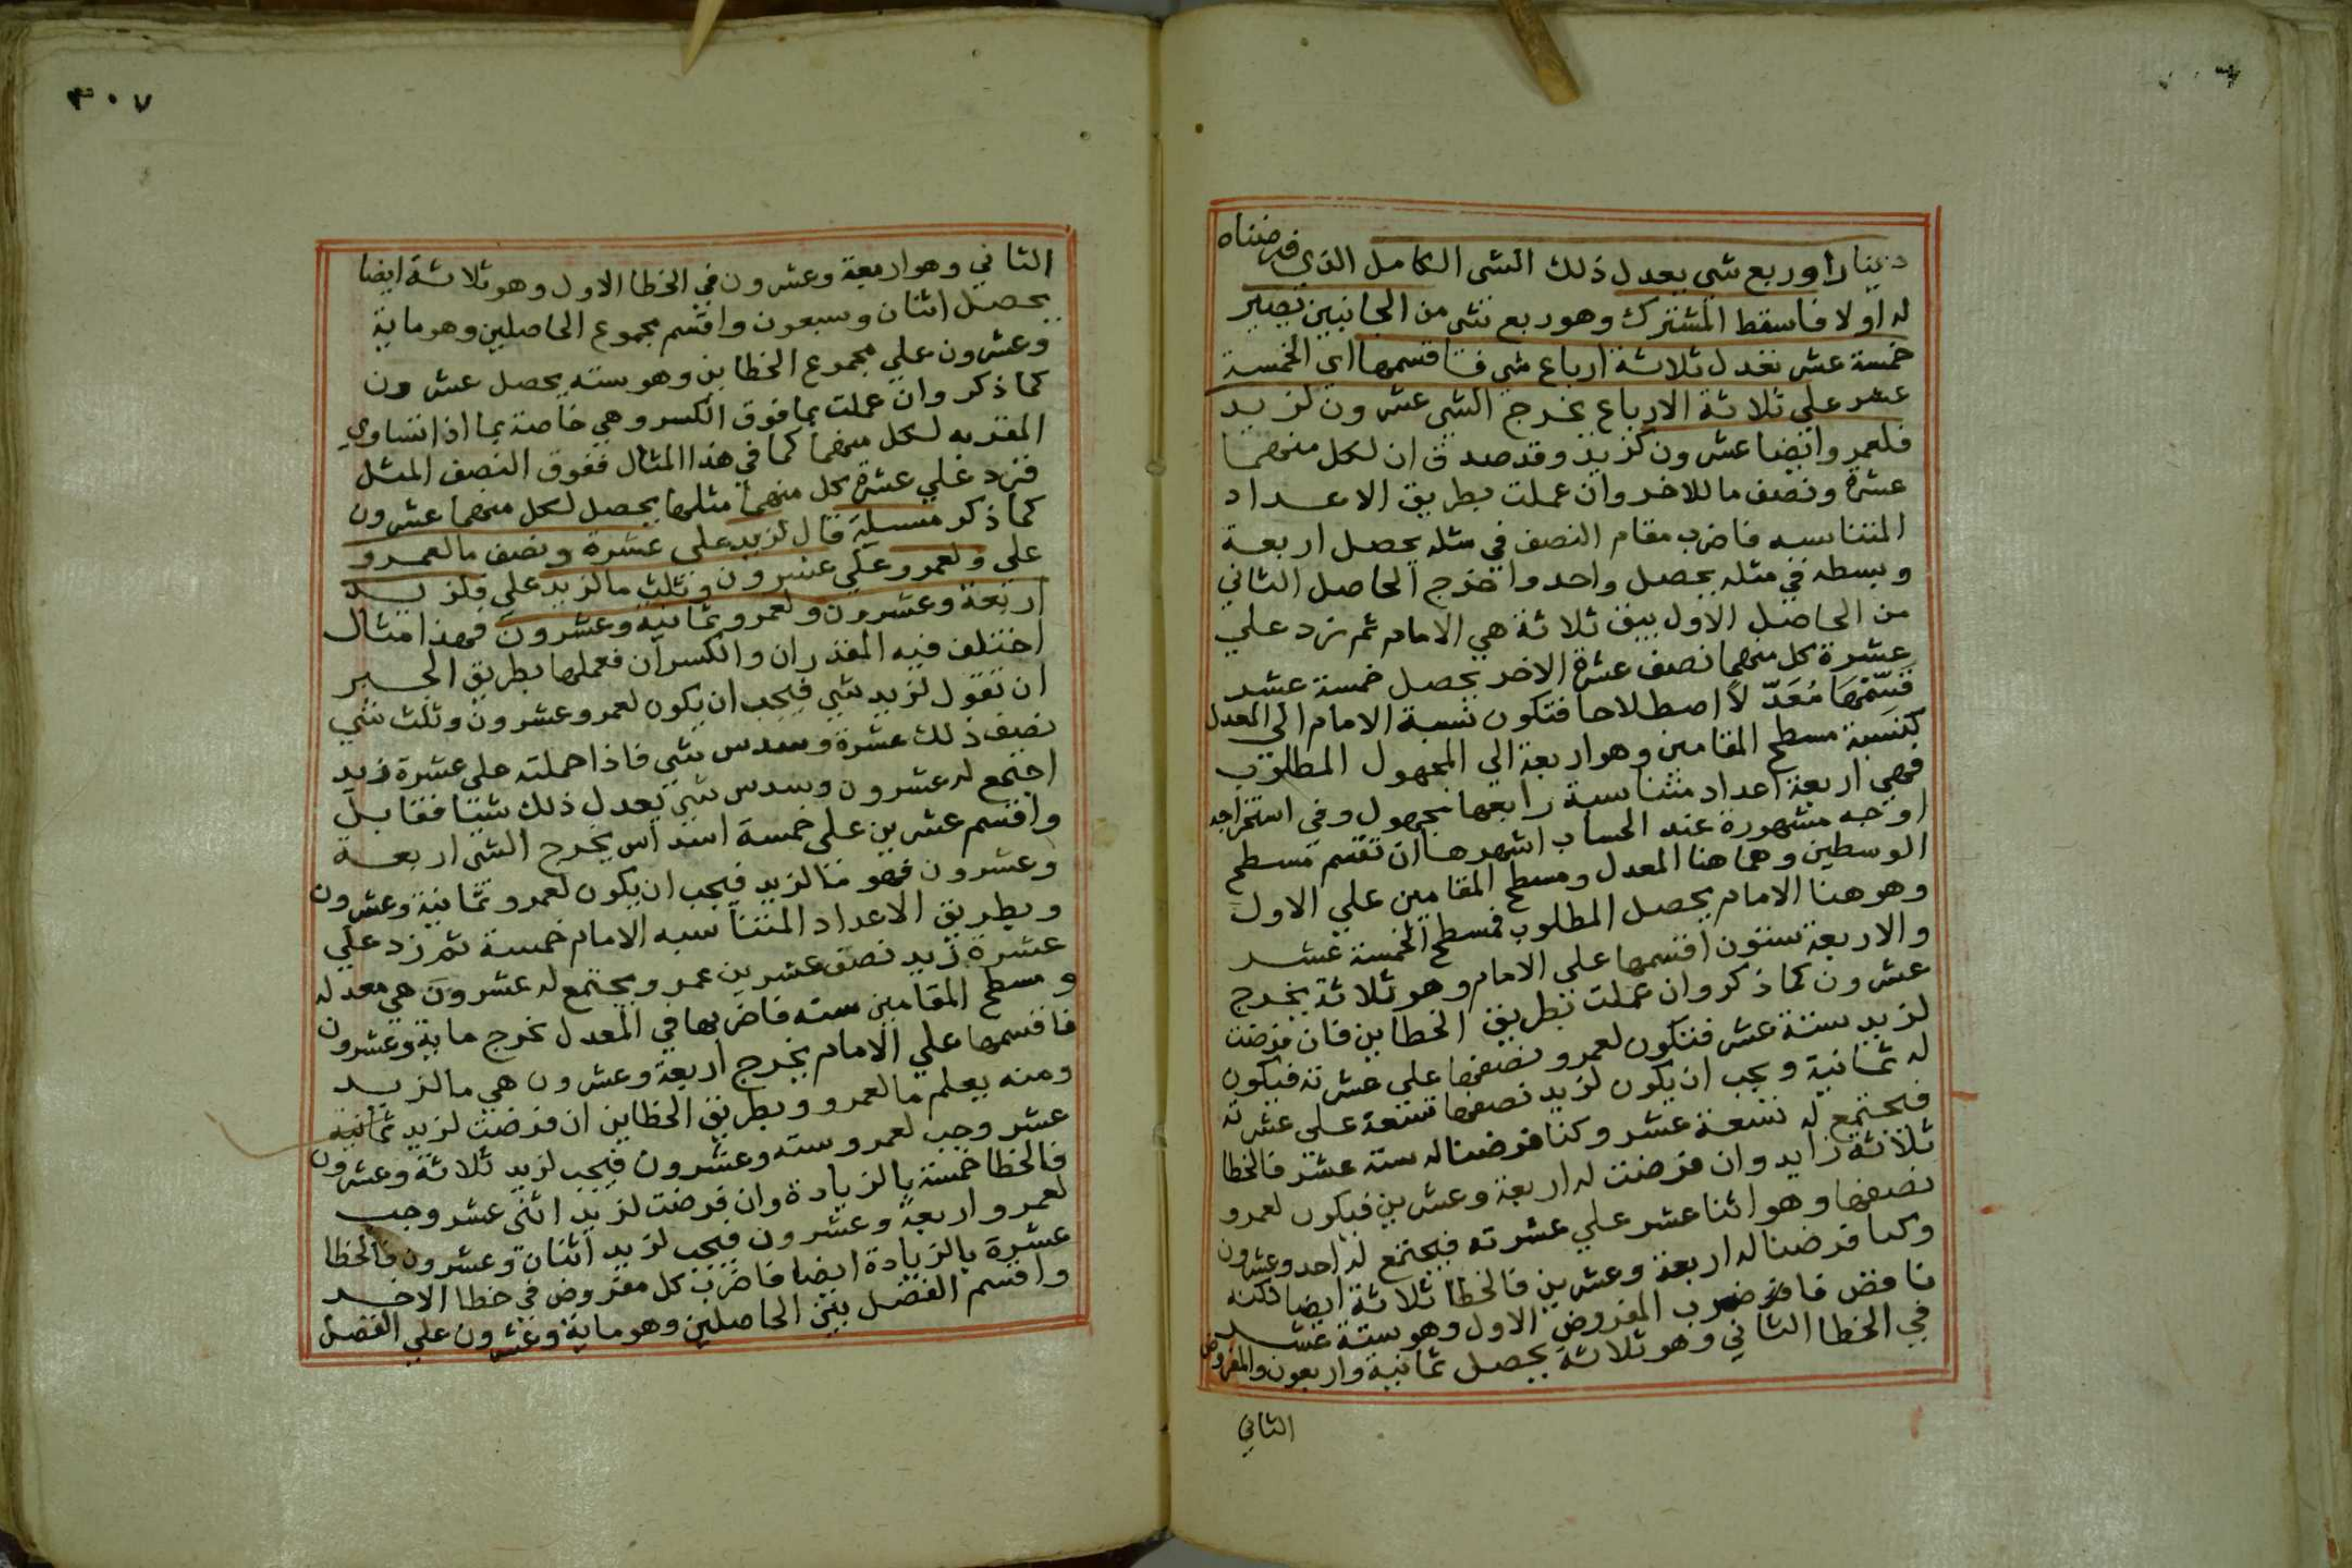 دينارا وربع شي يعدل ذلك الشي الكامل الذي فرضناه
له اولا فاسقط المشترك وهو ربع شي من الجانبين تصير
خمسة عشر تعدل ثلاثة ارباع شي فاقسمها اي الخمسة
عشر علي ثلاثة الارباع يخرج الشي عشرون لزيد
فلعمرو ايضا عشرون كزيد وقد صدق ان لكل منهما
عشرة ونصف ما للاخر وان عملت بطريق الاعداد
المتناسبه فاضرب مقام النصف في مثله يحصل اربعة
وبسطه في مثله يحصل واحد واخرج الحاصل الثاني
من الحاصل الاول يبق ثلاثة هي الامام ثم زد علي
عشرة كل منهما نصف عشرة الاخر يحصل خمسة عشر
فَسِّمْهَا مُعَدّلًا اصطلاحا فتكون نسبة الامام الي المعدل
كنسبة مسطح المقامين وهو اربعة الي المجهول المطلوب
فهي اربعة اعداد متناسبة رابعها مجهول وفي استخراجه
اوجه مشهورة عند الحساب اشهرها ان تقسم مسطح
الوسطين وهما هنا المعدل ومسطح المقامين علي الاول
وهو هنا الامام يحصل المطلوب فمسطح الخمسة عشر
والاربعة ستون اقسمها علي الامام وهو ثلاثة يخرج
عشرون كما ذكر وان عملت بطريق الخطاين فان فرضت
لزيد ستة عشر فتكون لعمرو نصفها علي عشرته فيكون
له ثمانية ويجب ان يكون لزيد نصفها تسعة علي عشرته
فيجتمع له تسعة عشر وكنا فرضنا له ستة عشر فالخطا
ثلاثة زايد وان فرضت له اربعة وعشرين فيكون لعمرو
نصفها وهو اثنا عشر علي عشرته فيجتمع له احد وعشرون
وكنا فرضنا له اربعة وعشرين فالخطا ثلاثة ايضا لكنه
ناقص فاضرب المفروض الاول وهو ستة عشر
في الخطا الثاني وهو ثلاثة يحصل ثمانية واربعون والمفروض
الثاني
٣٠٧
الثاني وهو اربعة وعشرون في الخطا الاول وهو ثلاثة ايضا
يحصل اثنان وسبعون واقسم مجموع الحاصلين وهو ماية
وعشرون علي مجموع الخطاين وهو سته يحصل عشرون
كما ذكر وان عملت بما فوق الكسر وهي خاصة بما اذا تساوي
المقر به لكل منهما كما في هذا المثال ففوق النصف المثل
فزد علي عشرة كل منهما مثلها يحصل لكل منهما عشرون
كما ذكر مسيلة قال لزيد علي عشرة ونصف ما لعمرو
علي ولعمرو علي عشرون وثلث ما لزيد علي فلزيد
اربعة وعشرون ولعمرو ثمانية وعشرون فهذا مثال
اختلف فيه المقدران والكسران فعملها بطريق الجبر
ان تقول لزيد شي فيجب ان يكون لعمرو عشرون وثلث شي
نصف ذلك عشرة وسدس شي فاذا حملته علي عشرة زيد
اجتمع له عشرون وسدس شي يعدل ذلك شيا فقابل
واقسم عشرين علي خمسة اسداس يخرج الشي اربعة
وعشرون فهو ما لزيد فيجب ان يكون لعمرو ثمانية وعشرون
وبطريق الاعداد المتناسبه الامام خمسة ثم زد علي
عشرة زيد نصف عشرين عمرو يجتمع له عشرون هي معدله
ومسطح المقامين سته فاضربها في المعدل تخرج ماية وعشرون
فاقسمها علي الامام يخرج اربعة وعشرون هي ما لزيد
ومنه يعلم ما لعمرو وبطريق الخطاين ان فرضت لزيد ثمانية
عشر وجب لعمرو سته وعشرون فيجب لزيد ثلاثة وعشرون
فالخطا خمسة بالزيادة وان فرضت لزيد اثني عشر وجب
لعمرو اربعة وعشرون فيجب لزيد اثنان وعشرون فالخطا
عشرة بالزيادة ايضا فاضرب كل مفروض في خطا الاخر
واقسم الفضل بين الحاصلين وهو ماية وعشرون علي الفضل